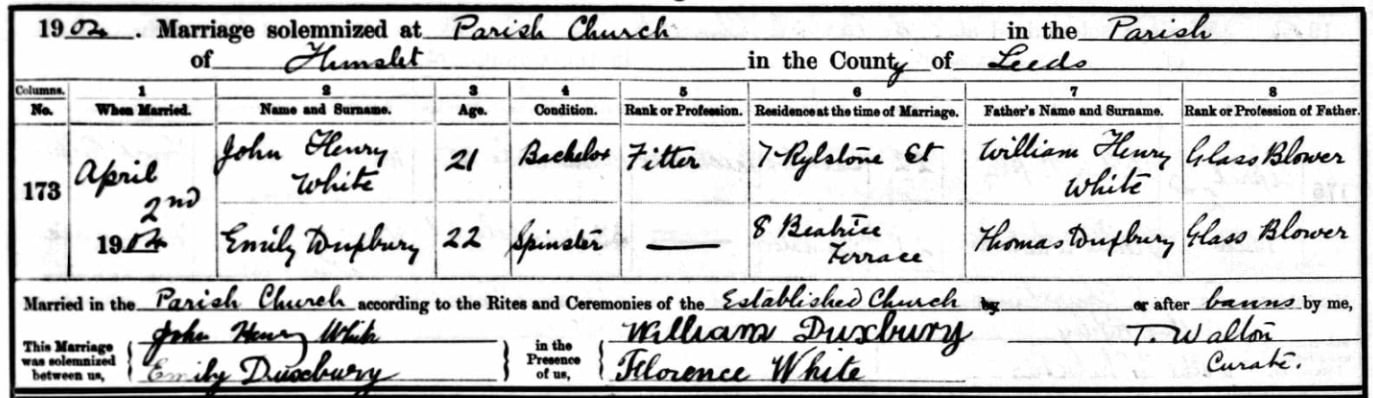 1904. Marriage solemnized at Parish Church in the Parish
of Hunslet in the County of Leeds
Columns. 1 2 3 4 5 6 7 8
No. When Married. Name and Surname. Age. Condition. Rank or Profession. Residence at the time of Marriage. Father's Name and Surname. Rank or Profession of Father.
173 April 2nd 1904 John Henry White 21 Bachelor Fitter 7 Rylstone St William Henry White Glass Blower
Emily Duxbury 22 Spinster — 8 Beatrice Terrace Thomas Duxbury Glass Blower
Married in the Parish Church according to the Rites and Ceremonies of the Established Church by or after banns by me,
This Marriage was solemnized between us, John Henry White Emily Duxbury in the Presence of us, William Duxbury Florence White T. Walton Curate.